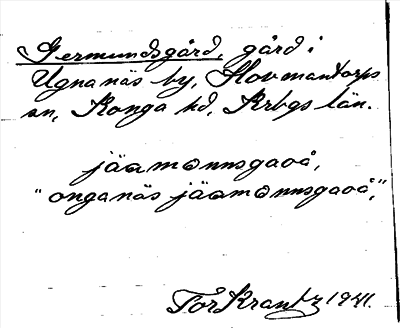 Germundsgård, gård i
Ugnanäs by, Hovmantorps
sn, Konga hd, Krbgs län.
jäamonnsgaoå,
"onganäs jäamonnsgaoå,"
Tor Krantz 1941.